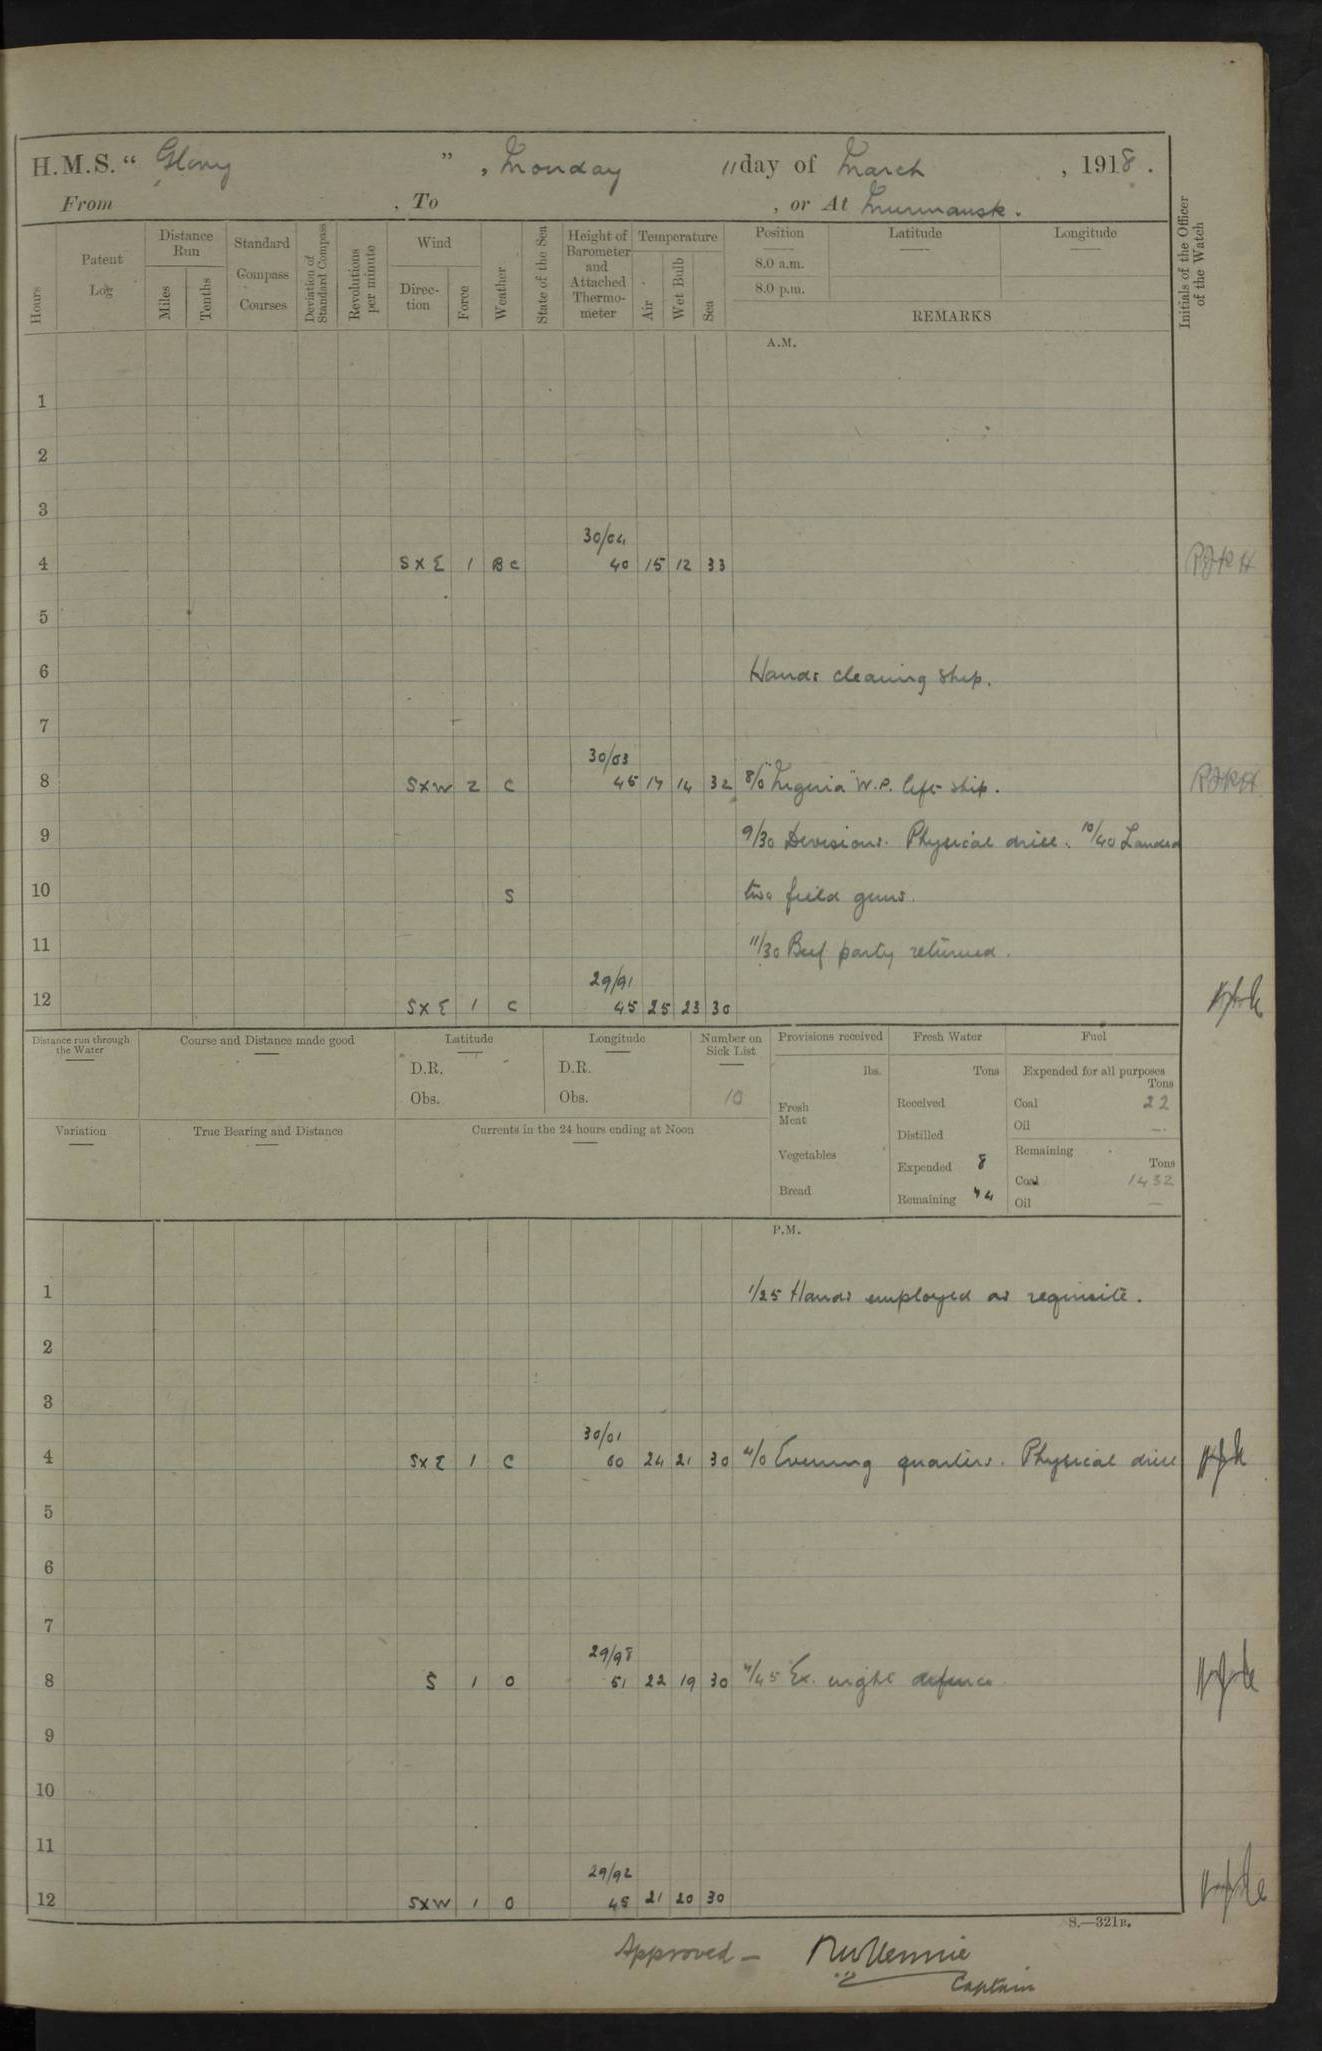 H.M.S. " Glory " , Monday 11 day of March , 1918 .
From , To , or At Murmansk .
Hours
Patent Log
Distance Run
Miles
Tenths
Standard Compass Courses
Deviation of Standard Compass
Revolutions per minute
Wind
Direc-tion
Force
Weather
State of the Sea
Height of Barometer and Attached Thermo-meter
Temperature
Air
Wet Bulb
Sea
Position
8.0 a.m.
8.0 p.m.
Latitude
Longitude
REMARKS
Initials of the Officer of the Watch
A.M.
1
2
3
30/04
4 S X E 1 B C 40 15 12 33
5
6 Hands cleaning ship.
7
30/03
8 S X W 2 C 45 17 14 32 8/0 "Nigeria" W.P. left ship.
9 9/30 Divisions. Physical drill. 10/40 Landed
10 S two field guns.
11 11/30 Beef party returned.
29/91
12 S X E 1 C 45 25 23 30
Distance run through the Water
Course and Distance made good
Latitude
D.R.
Obs.
Longitude
D.R.
Obs.
Number on Sick List
10
Provisions received
lbs.
Fresh Meat
Vegetables
Bread
Fresh Water
Tons
Received
Distilled
Expended 8
Remaining 74
Fuel
Expended for all purposes
Tons
Coal 22
Oil —
Remaining
Tons
Coal 1432
Oil —
Variation
True Bearing and Distance
Currents in the 24 hours ending at Noon
P.M.
1 1/25 Hands employed as requisite.
2
3
30/01
4 S X E 1 C 60 24 21 30 4/0 Evening quarters. Physical drill
5
6
7
29/98
8 S 1 O 51 22 19 30 7/45 Ex. night defence
9
10
11
29/92
12 S X W 1 O 45 21 20 30
S.—321B.
Approved —
Captain